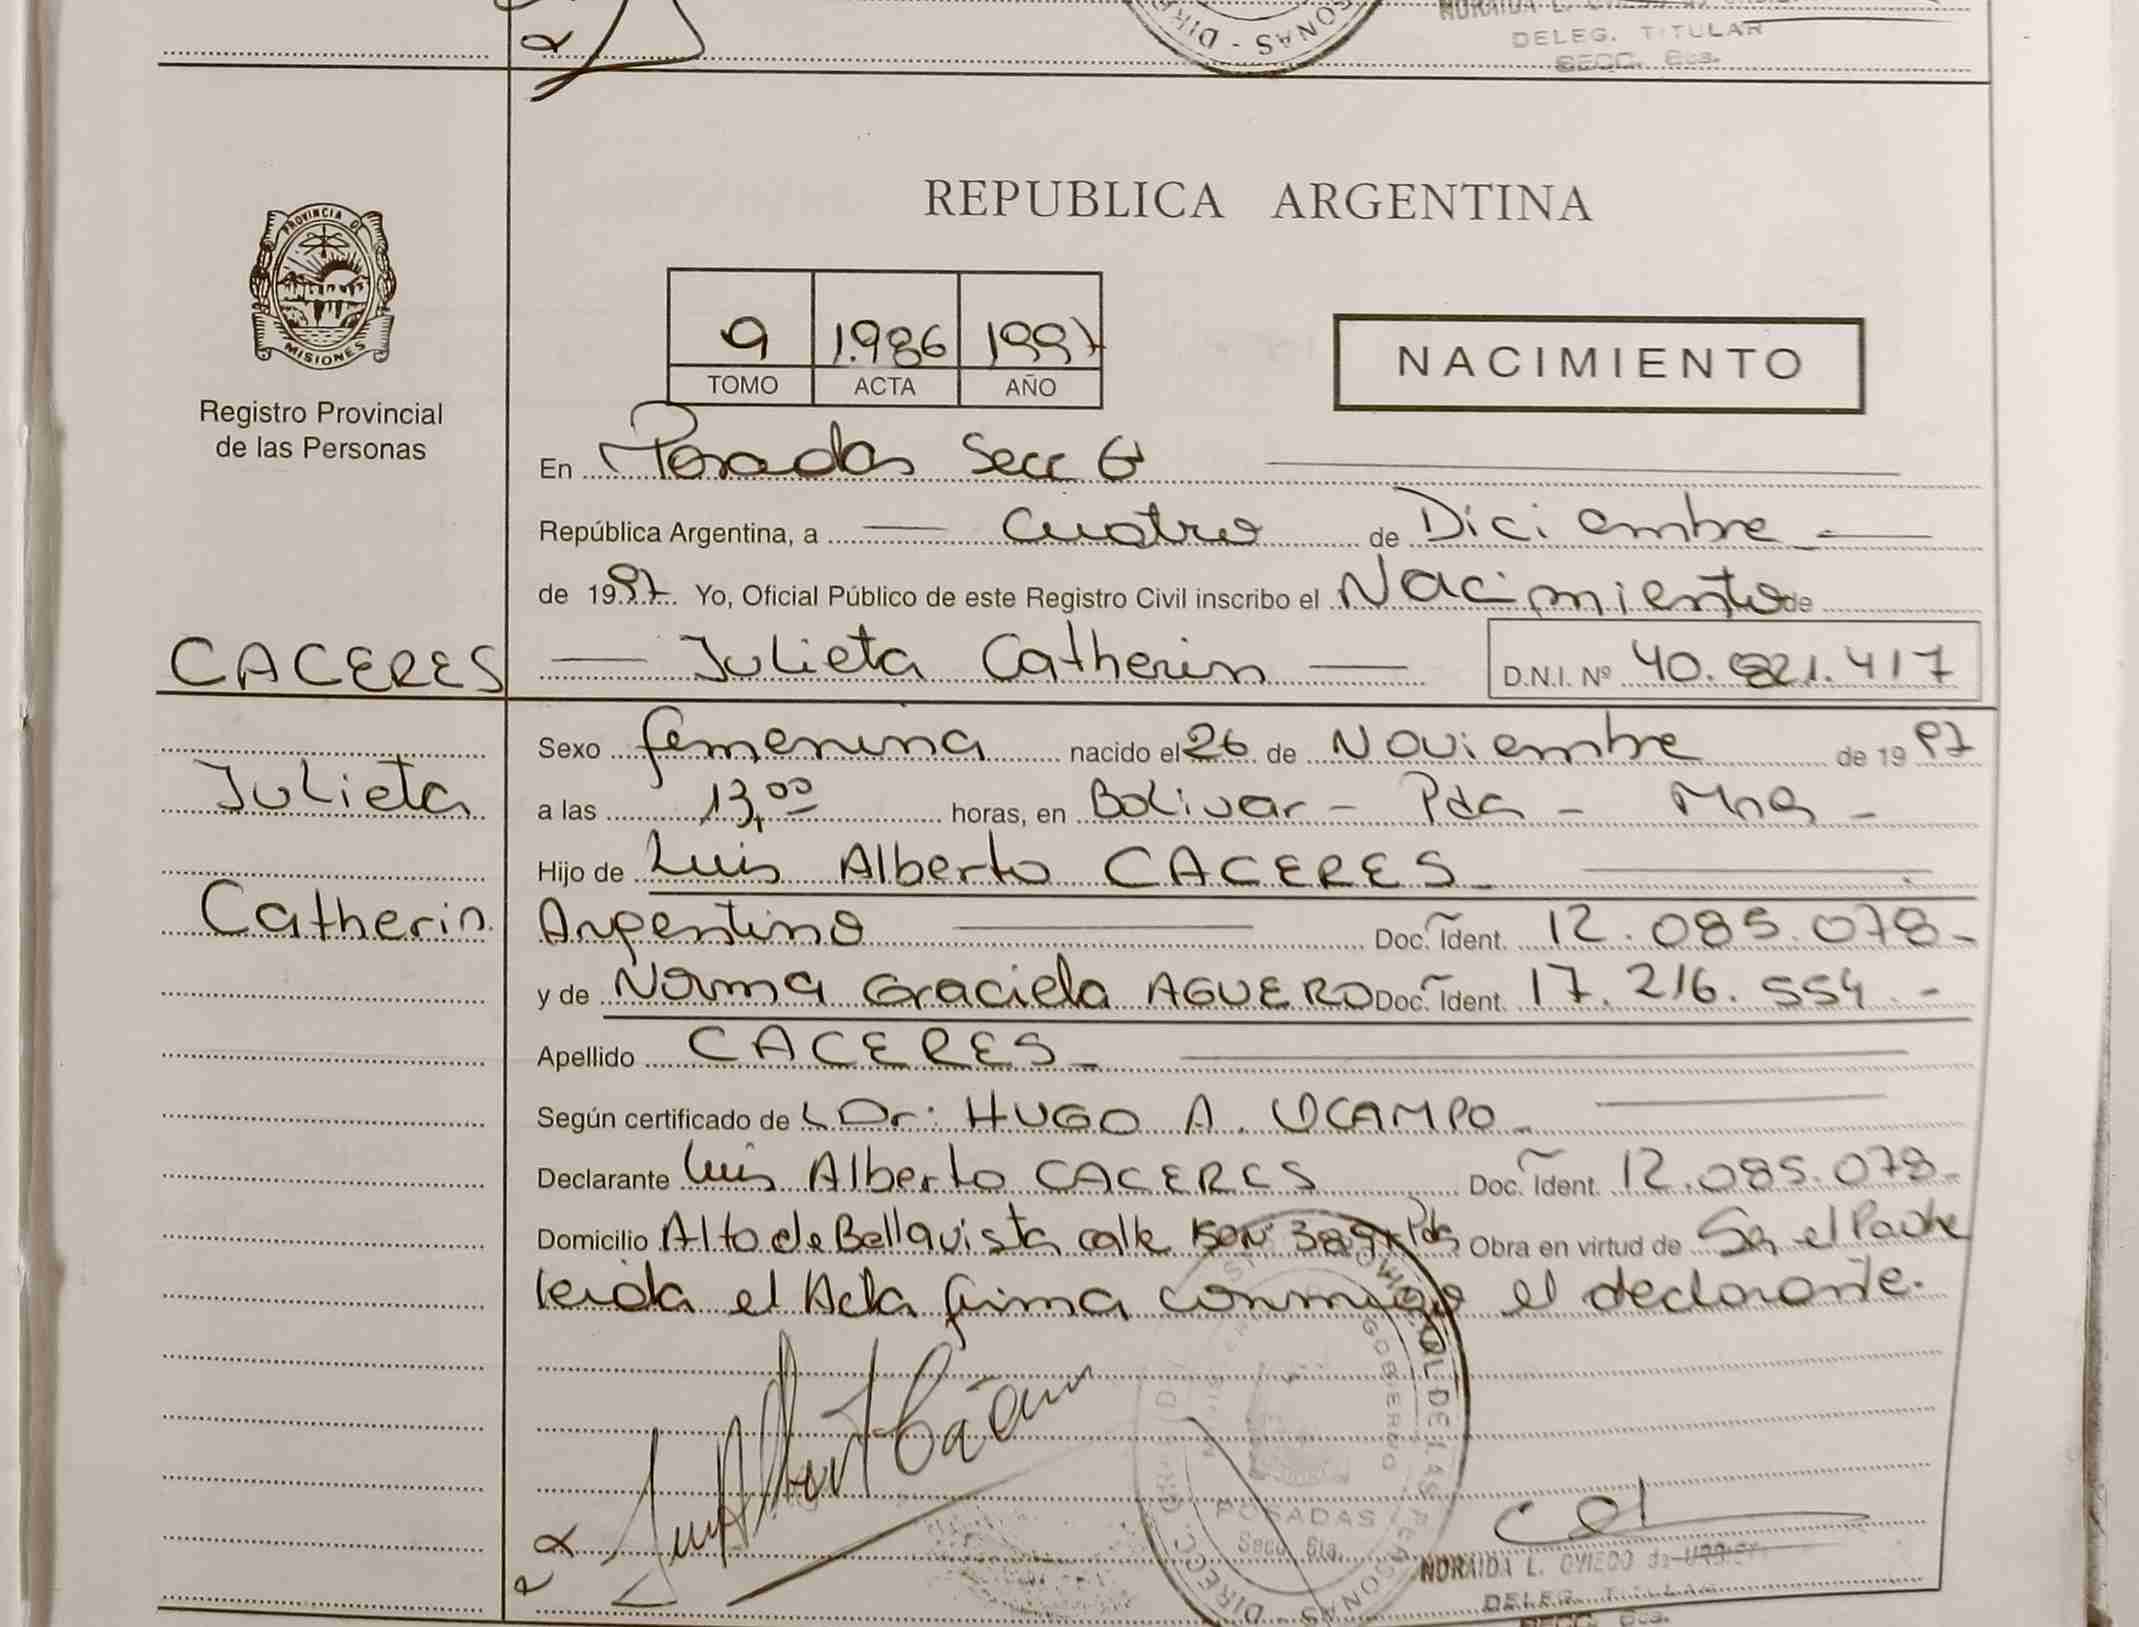 DELEG. TITULAR
SECC. 6ta.
PROVINCIA DE
MISIONES
Registro Provincial
de las Personas
REPUBLICA ARGENTINA
9 1.986 1997
TOMO ACTA AÑO
NACIMIENTO
En Posadas Secc 6ª
República Argentina, a cuatro de Diciembre
de 1997 Yo, Oficial Público de este Registro Civil inscribo el Nacimiento de
CACERES Julieta Catherin D.N.I. Nº 40.821.417
Sexo femenina nacido el 26 de Noviembre de 1997
Julieta
a las 13,00 horas, en Bolivar - Pdas - Mnes -
Hijo de Luis Alberto CACERES
Catherin
Argentino Doc. Ident. 12.085.078-
y de Norma Graciela AGUERO Doc. Ident. 17.216.554.-
Apellido CACERES
Según certificado de Dr: HUGO A. OCAMPO
Declarante Luis Alberto CACERES Doc. Ident. 12.085.078-
Domicilio Alto de Bellavista calle Nº 3894 Pdas Obra en virtud de Ser el Padre
leida el Acta firma conmigo el declarante.
GOBIERNO
POSADAS
Secc. 6ta.
NORAIDA L. OVIEDO de
DELEG. TITULAR
SECC. 6ta.